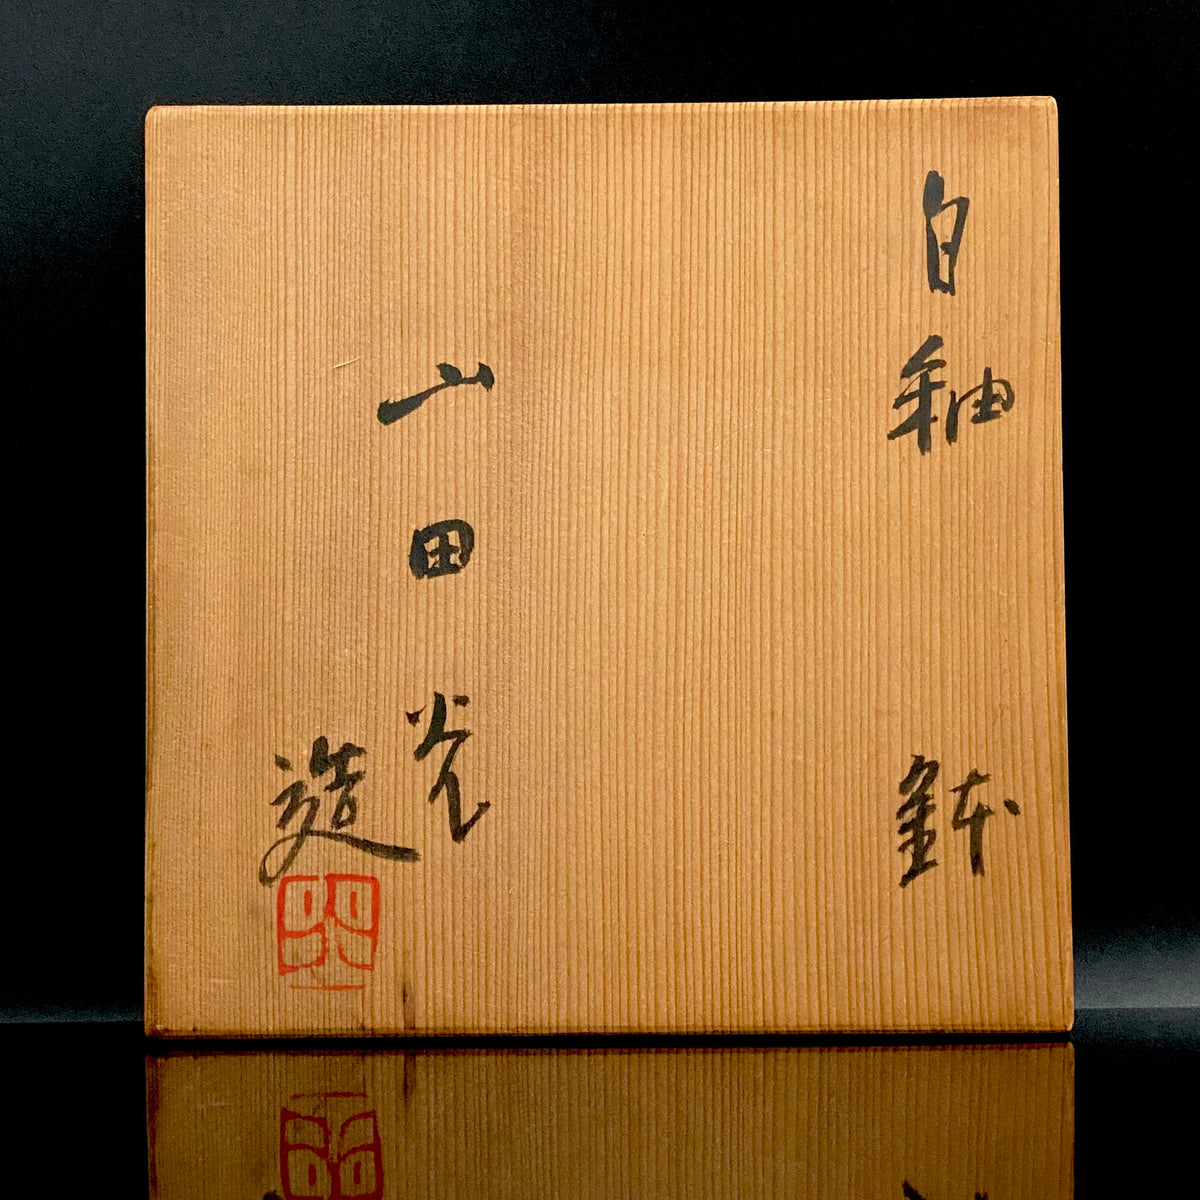 白釉 鉢
山田光
造